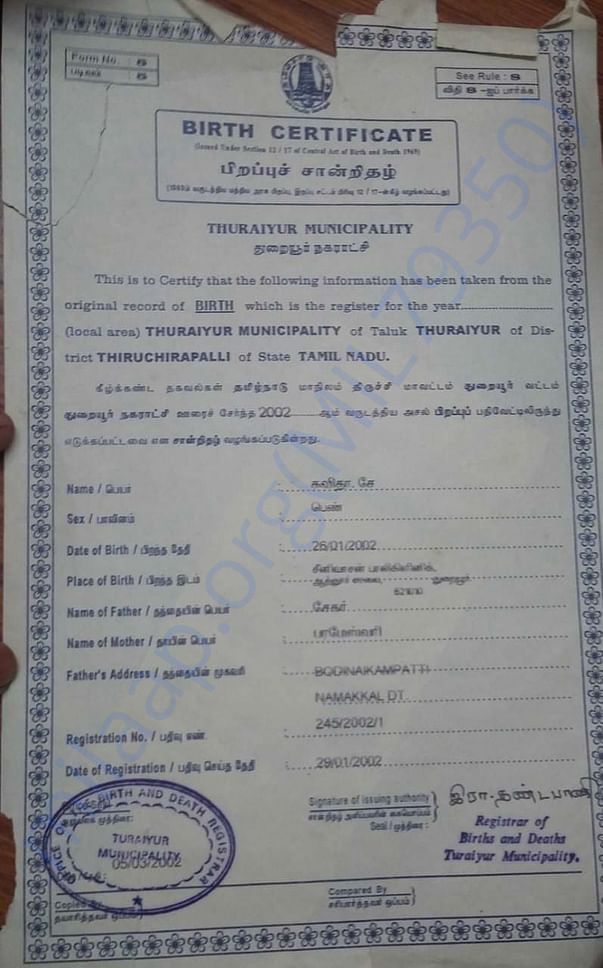 Form No. 5
படிவம் 5
See Rule : 8
விதி 8 -ஐப் பார்க்க
BIRTH CERTIFICATE
(Issued Under Section 12 / 17 of Central Act of Birth and Death 1969)
பிறப்புச் சான்றிதழ்
THURAIYUR MUNICIPALITY
துறையூர் நகராட்சி
This is to Certify that the following information has been taken from the
original record of BIRTH which is the register for the year
(local area) THURAIYUR MUNICIPALITY of Taluk THURAIYUR of Dis-
trict THIRUCHIRAPALLI of State TAMIL NADU.
கீழ்க்கண்ட தகவல்கள் தமிழ்நாடு மாநிலம் திருச்சி மாவட்டம் துறையூர் வட்டம்
துறையூர் நகராட்சி ஊரைச் சேர்ந்த 2002 ஆம் வருடத்திய அசல் பிறப்புப் பதிவேட்டிலிருந்து
எடுக்கப்பட்டவை என சான்றிதழ் வழங்கப்படுகின்றது.
Name / பெயர் : கவிதா. சே
Sex / பாலினம் : பெண்
Date of Birth / பிறந்த தேதி : 26/01/2002
Place of Birth / பிறந்த இடம் : சீனிவாசன்
ஆத்தூர் சாலை, துறையூர்
621010
Name of Father / தந்தையின் பெயர் : சேகர்
Name of Mother / தாயின் பெயர் : பரமேஸ்வரி
Father's Address / தந்தையின் முகவரி : BODINAIKAMPATTI
NAMAKKAL DT.
Registration No. / பதிவு எண். : 245/2002/1
Date of Registration / பதிவு செய்த தேதி : 29/01/2002
OFFICE OF BIRTH AND DEATH REGISTRAR
TURAIYUR
MUNICIPALITY
05/03/2002
Signature of issuing authority
சான்றிதழ் அளிப்பவரின் கையொப்பம்
Seal / முத்திரை :
இரா. தண்டபாணி
Registrar of
Births and Deaths
Turaiyur Municipality.
Copied By
தயாரித்தவர் ஒப்பம்
Compared By
சரிபார்த்தவர் ஒப்பம்
milaap.org(MIL79350)